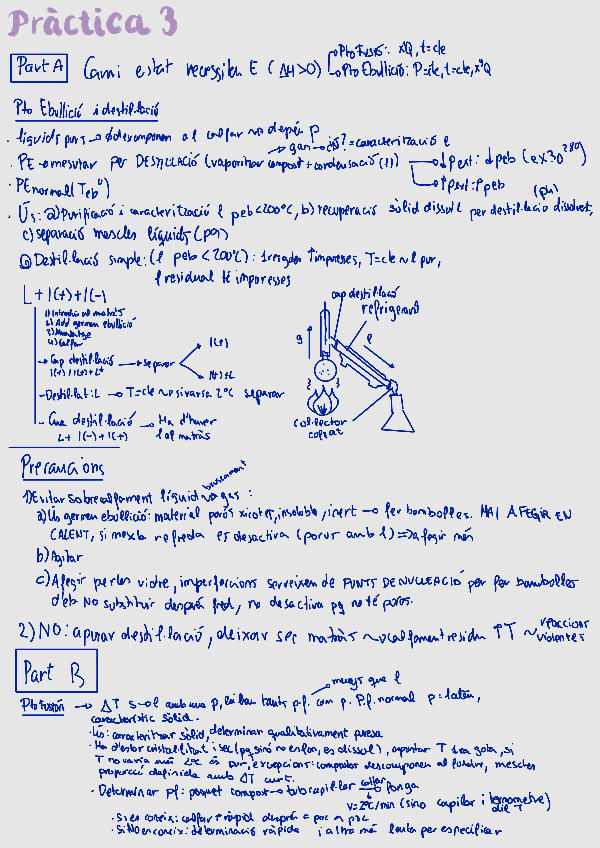 Pràctica 3
Part A Canvi estat necessiten E (ΔH>0) Pto Fusió: xQ, t=cte
Pto Ebullició: P=cte, t=cte, xºQ
Pto Ebullició i destil·lació
· líquids purs → descomponen al calfar no depén p
gas → característic l
· PE → mesurar per DESTIL·LACIÓ (vaporitzar compost + condensació (l)) ↓pext: ↓peb
↑pext: ↑peb
· PE normal (Tebº)
(ph)
· Ús: a) Purificació i caracterització l peb<200ºC, b) recuperació sòlid dissol per destil·lació dissolvent,
c) separació mescles líquids (pos)
a) Destil·lació simple: (l peb<200ºC): 1r rogades ↑impureses, T=cte ~ l pur,
l residual té impureses
L+l(+)+l(-)
1) Introduir al matràs
2) Add germen ebullició
3) Muntatge
4) Calfar
- Cap destil·lació → separar l(+)
l(+)+L
- Destil·lat: L → T=cte no si varia 2ºC separar
- Cua destil·lació → Ha d'haver
L+l(-)+l(+) l al matràs
cap destil·lació
refrigerant
g
l
col·lector
colzat
Precaucions
bruscament
1) Evitar sobrecalfament líquid → gas:
a) Ús germen ebullició: material porós xicotet, insoluble, inert → fer bombolles. MAI AFEGIR EN
CALENT, si mescla refreda es desactiva (porus amb l) => afegir més
b) Agitar
c) Afegir perles vidre, imperfeccions serveixen de PUNTS DE NUCLEACIÓ per fer bombolles
deb NO substituir després fred, no desactiva pq no té poros.
2) NO: apurar destil·lació, deixar sec matràs ~ calfament residu ↑T ~ reaccions
violentes
Part B
menys que l
Pto fusió → ΔT s→l amb una p, hi han tants p.f. com p. P.f. normal p=1atm,
característic sòlid.
· Ús: caracteritzar sòlid, determinar qualitativament puresa
· Ha d'estar cristal·litzat i sec (pq sinó no es fon, es dissol), apuntar T 1ra gota, si
T no varia més 2ºC és pur, excepcions: compostos descomponen al fondre, mescles
proporció definida amb ΔT curt.
· Determinar pf: poquet compost → tubo capil·lar calfar → fonga
v=2ºC/min (sino capilar i termometre)
dif T
· Si es coneix: calfar + ràpid després a poc a poc
· Si NO en coneix: determinació ràpida i altra més lenta per especificar